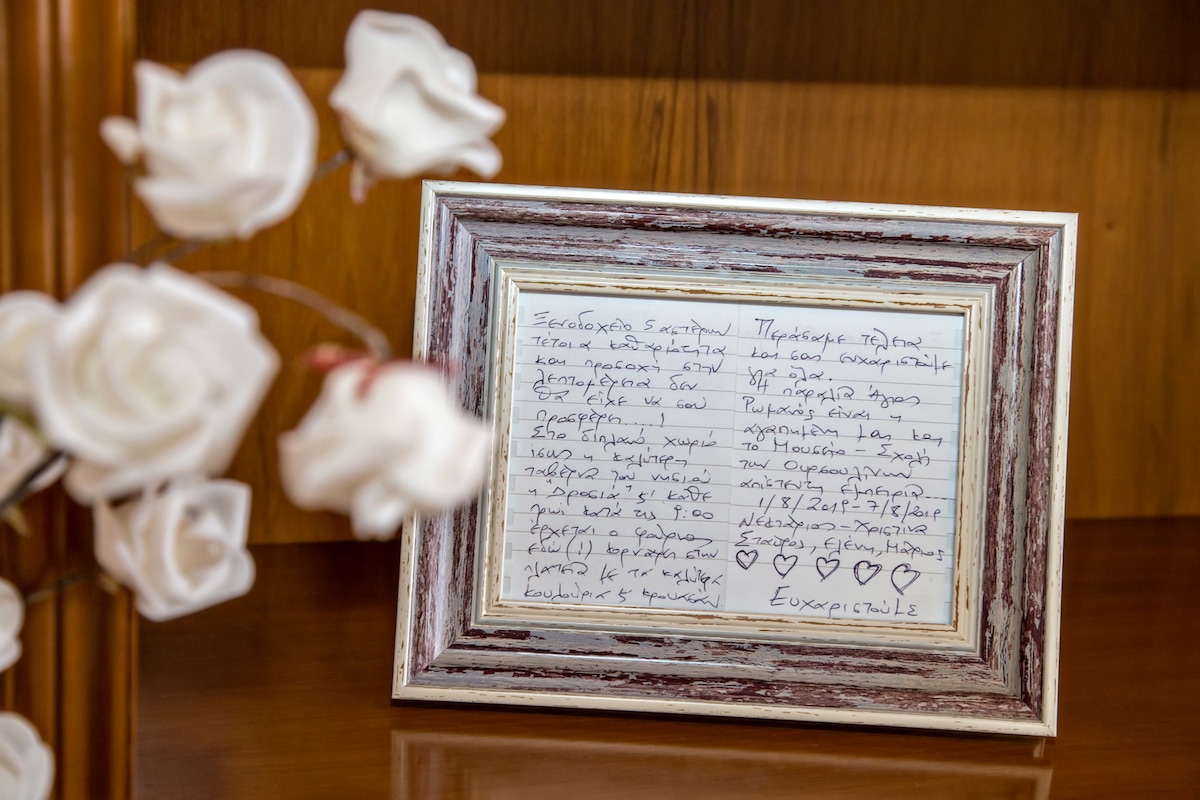 Ξενοδοχείο 5 αστέρων
τέτοια καθαριότητα
και προσοχή στην
λεπτομέρεια δεν
θα είχε να σου
προσφέρη....!
Στο διπλανό χωριό
ίσως η καλύτερη
ταβέρνα του νησιού
η "Δροσιά" & κάθε
πρωι κατά τις 9:00
έρχεται ο φούρνος
εδώ (!) κορνάρη στην
πλατεία με τα καλύτερα
κουλούρια & κρουασάν
Περάσαμε τέλεια
και σας ευχαριστούμε
για όλα.
Η παραλία Άγιος
Ρωμανός είναι η
αγαπημένη μας και
το Μουσείο - Σχολή
των Ουρσουλινων
απίστευτη εμπειρία....
1/8/2019-7/8/2019
Νεκτάριος - Χριστίνα
Σταύρος, Ελένη, Μάριος
Ευχαριστούμε